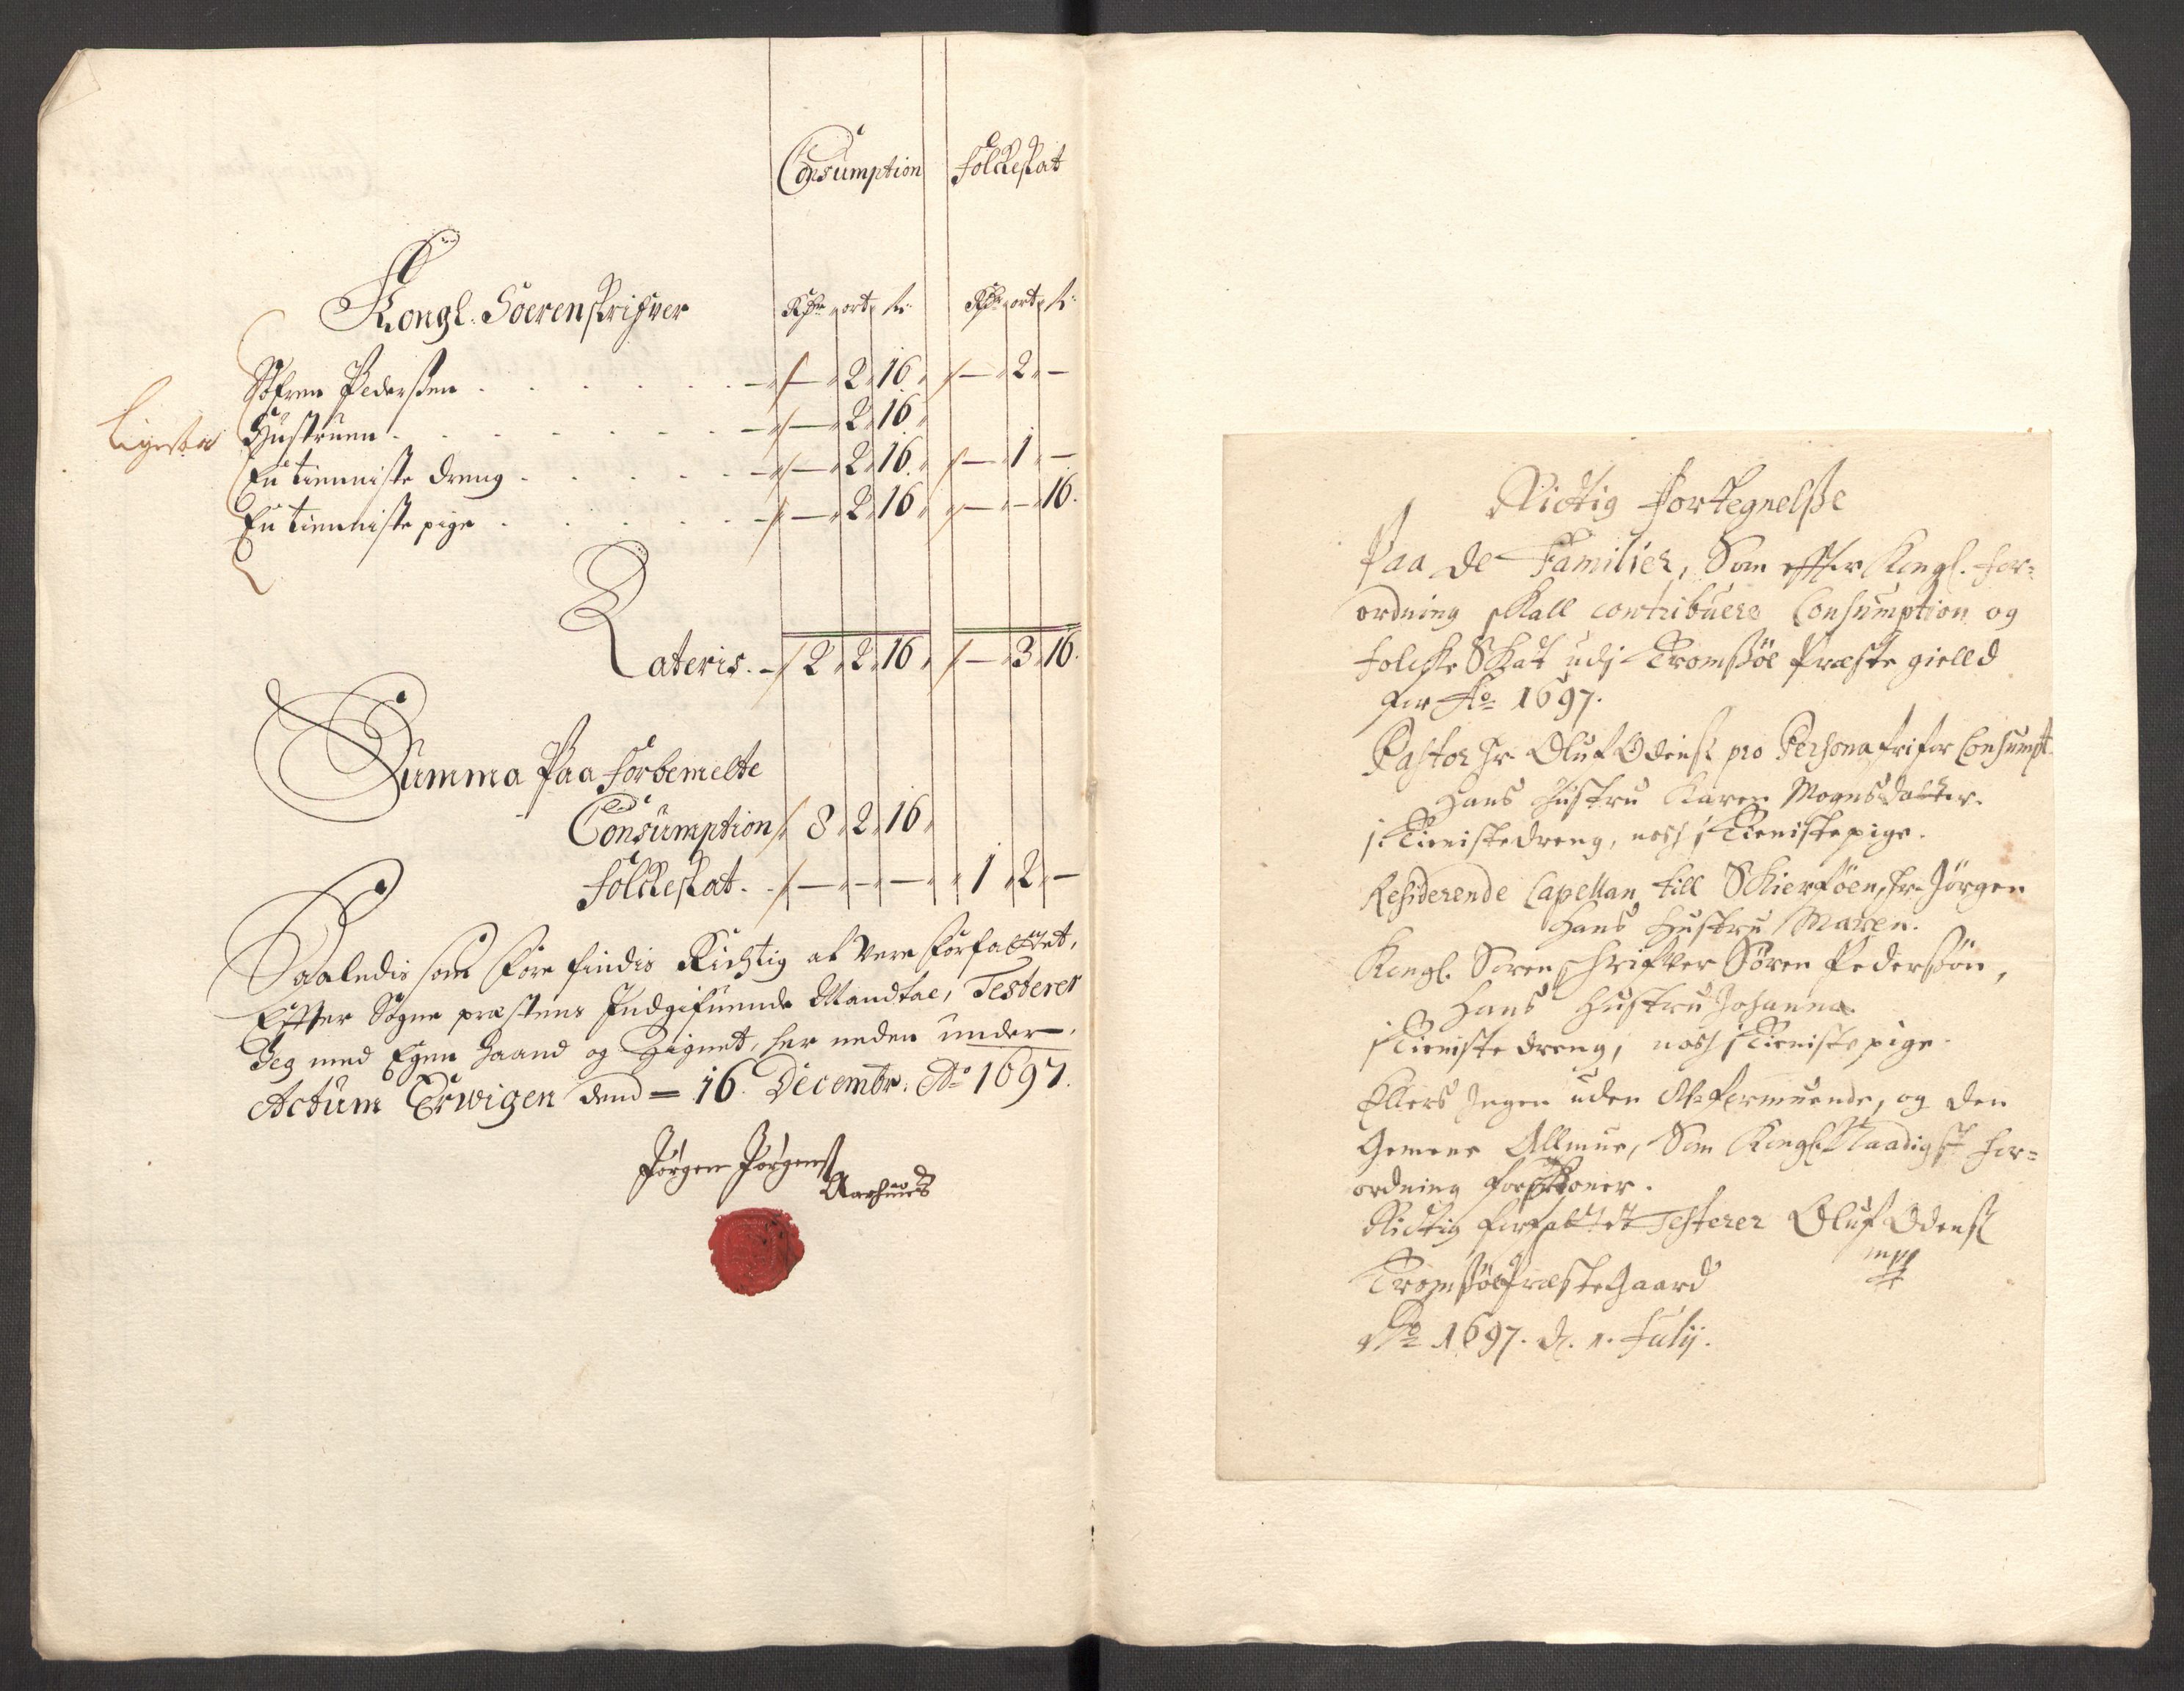 Consumption Folckeskat
Kongl. Soerenskrifver Rdr ort s: Rdr ort s:
Søfren Pederssen . . . . . . – 2 16 – 2 –
Ligesaa Hustruen . . . . . . – 2 16
En tienniste dreng . . . . . – 2 16 – 1 –
En tienniste pige . . . . . – 2 16 – – 16.
Lateris. – 2 2 16 – 3 16.
Summa Paa Forbemelte
Consumption 8 2 16
Folckeskat. – – – 1 2 –
Saaledis som fore findis Richtig at vere forfattet,
Effter Sogne præstens Indgifuende Mandtal, Testerer
Jeg med Egen haand og Zignet, her neden under.
Actum Erwigen dend = 16. Decembr: Ao 1697.
Jørgen Jørgens
Aarhuus
Rictig Fortegnelsse
Paa de Familier, Som effter Kongl. For=
ordning skall contribuere Consumption og
folcke Skat udj Tromssøe Præste gielld
for Ao 1697.
Pastor Hr. Oluf Odens pro Persona fri for Consumpt.
Hans Hustru Karen Mognsdatter.
1 Tienistedreng, noch 1 Tienistepige.
Residerende Capellan till Skierføen, Hr. Jörgen
Hans Hustru Maren.
Kongl. Sorenschrifver Sören Pederssön,
Hans Hustru Johanna
1 Tieniste dreng, noch 1 Tienistepige.
Ellers Ingen uden Uformuende, og den
Gemene Allmue, Som Kongl. Naadigst For=
ordning forskoner.
Rictig forfattet Testerer Oluf Odens
mpp
Tromssøe Præstegaard
Ao 1697. d. 1. Julij.